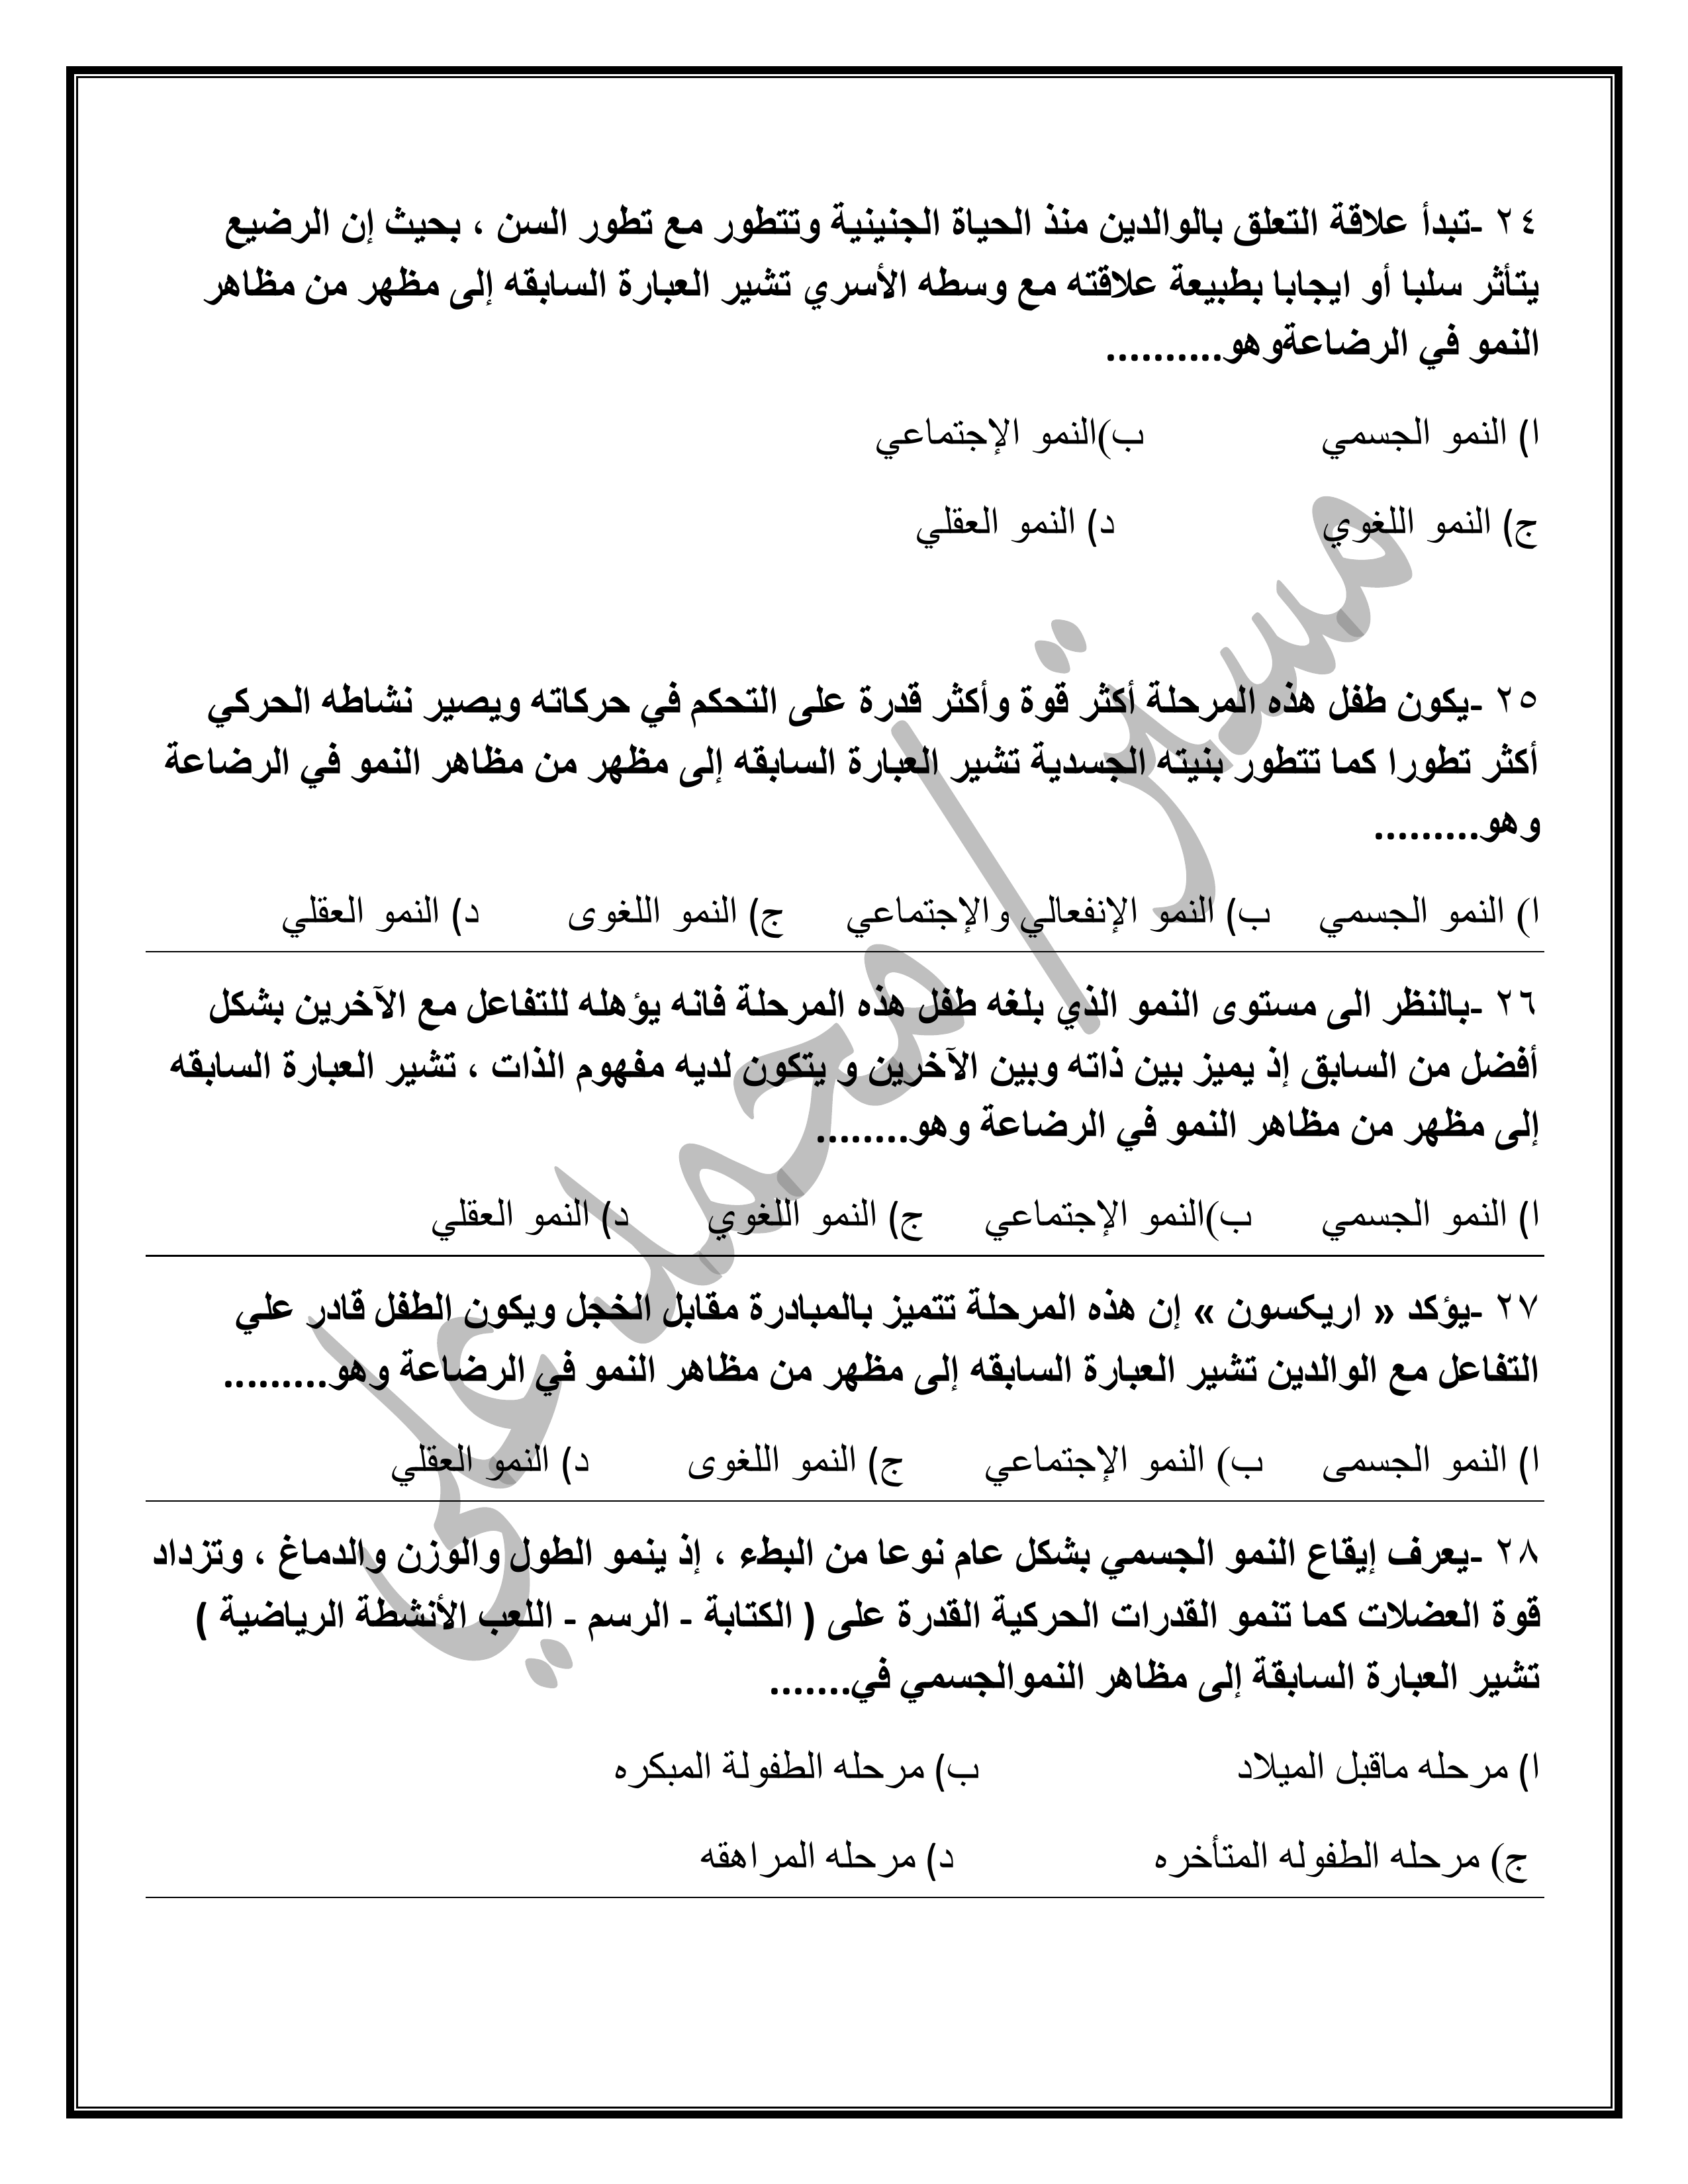 ٢٤ -تبدأ علاقة التعلق بالوالدين منذ الحياة الجنينية وتتطور مع تطور السن ، بحيث إن الرضيع
يتأثر سلبا أو ايجابا بطبيعة علاقته مع وسطه الأسري تشير العبارة السابقه إلى مظهر من مظاهر
النمو في الرضاعةوهو..........
ا) النمو الجسمي ب)النمو الإجتماعي
ج) النمو اللغوي د) النمو العقلي
٢٥ -يكون طفل هذه المرحلة أكثر قوة وأكثر قدرة على التحكم في حركاته ويصير نشاطه الحركي
أكثر تطورا كما تتطور بنيته الجسدية تشير العبارة السابقه إلى مظهر من مظاهر النمو في الرضاعة
وهو.........
ا) النمو الجسمي ب) النمو الإنفعالي والإجتماعي ج) النمو اللغوى د) النمو العقلي
٢٦ -بالنظر الى مستوى النمو الذي بلغه طفل هذه المرحلة فانه يؤهله للتفاعل مع الآخرين بشكل
أفضل من السابق إذ يميز بين ذاته وبين الآخرين و يتكون لديه مفهوم الذات ، تشير العبارة السابقه
إلى مظهر من مظاهر النمو في الرضاعة وهو........
ا) النمو الجسمي ب)النمو الإجتماعي ج) النمو اللغوي د) النمو العقلي
٢٧ -يؤكد « اريكسون » إن هذه المرحلة تتميز بالمبادرة مقابل الخجل ويكون الطفل قادر علي
التفاعل مع الوالدين تشير العبارة السابقه إلى مظهر من مظاهر النمو في الرضاعة وهو.........
ا) النمو الجسمى ب) النمو الإجتماعي ج) النمو اللغوى د) النمو العقلي
٢٨ -يعرف إيقاع النمو الجسمي بشكل عام نوعا من البطء ، إذ ينمو الطول والوزن والدماغ ، وتزداد
قوة العضلات كما تنمو القدرات الحركية القدرة على ( الكتابة - الرسم - اللعب الأنشطة الرياضية )
تشير العبارة السابقة إلى مظاهر النموالجسمي في.......
ا) مرحله ماقبل الميلاد ب) مرحله الطفولة المبكره
ج) مرحله الطفوله المتأخره د) مرحله المراهقه
مستر/محمد علي